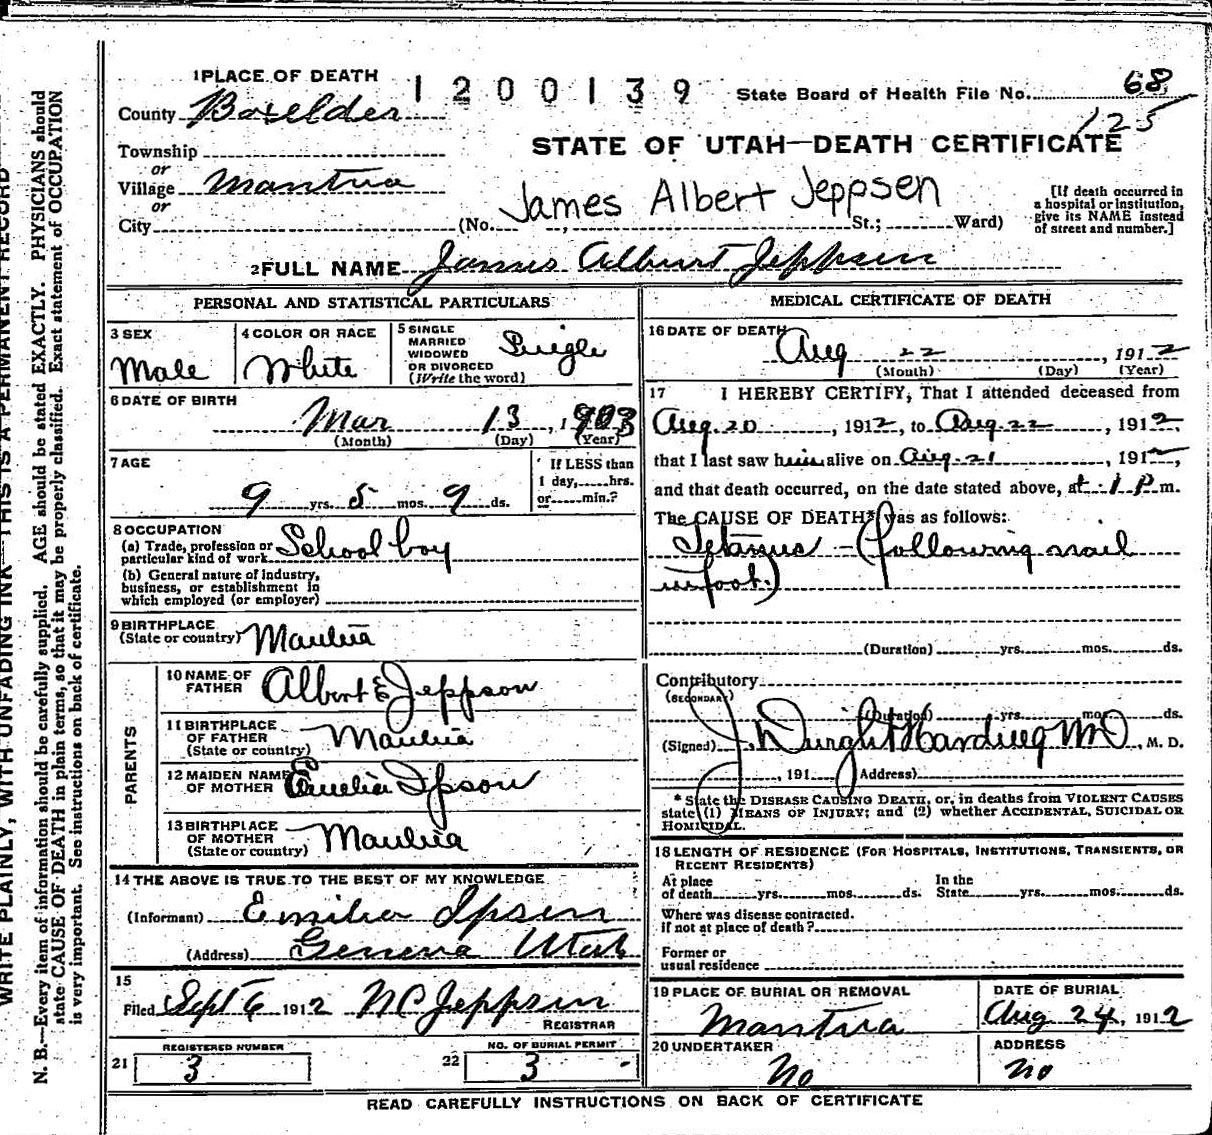 1 PLACE OF DEATH
1200139
State Board of Health File No. 68
125
County Boxelder
STATE OF UTAH—DEATH CERTIFICATE
Township
or
Village Mantua
or
City
(No. , St.; Ward)
James Albert Jeppsen
[If death occurred in
a hospital or institution,
give its NAME instead
of street and number.]
2 FULL NAME James Albert Jeppsen
PERSONAL AND STATISTICAL PARTICULARS
3 SEX
Male
4 COLOR OR RACE
White
5 SINGLE
MARRIED
WIDOWED
OR DIVORCED
(Write the word)
Single
6 DATE OF BIRTH
Mar 13, 1903
(Month) (Day) (Year)
7 AGE
9 yrs. 5 mos. 9 ds.
If LESS than
1 day, hrs.
or min.?
8 OCCUPATION
(a) Trade, profession or
particular kind of work School boy
(b) General nature of industry,
business, or establishment in
which employed (or employer)
9 BIRTHPLACE
(State or country) Mantua
PARENTS
10 NAME OF
FATHER Albert E Jeppson
11 BIRTHPLACE
OF FATHER
(State or country) Mantua
12 MAIDEN NAME
OF MOTHER Emelia Ipson
13 BIRTHPLACE
OF MOTHER
(State or country) Mantua
14 THE ABOVE IS TRUE TO THE BEST OF MY KNOWLEDGE
(Informant) Emilia Ipsen
(Address) Geneva Utah
15
Filed Sept 6 1912 N C Jeppsen
REGISTRAR
REGISTERED NUMBER
21 3
NO. OF BURIAL PERMIT
22 3
MEDICAL CERTIFICATE OF DEATH
16 DATE OF DEATH
Aug 22, 1912
(Month) (Day) (Year)
17 I HEREBY CERTIFY, That I attended deceased from
Aug. 20, 1912, to Aug. 22, 1912,
that I last saw him alive on Aug. 21, 1912,
and that death occurred, on the date stated above, at 1 P m.
The CAUSE OF DEATH* was as follows:
Tetanus - (following nail
in foot.)
(Duration) yrs. mos. ds.
Contributory
(SECONDARY)
(Duration) yrs. mos. ds.
(Signed) J. Dwight Harding MD, M. D.
, 191 (Address)
* State the DISEASE CAUSING DEATH, or, in deaths from VIOLENT CAUSES
state (1) MEANS OF INJURY; and (2) whether ACCIDENTAL, SUICIDAL OR
HOMICIDAL.
18 LENGTH OF RESIDENCE (FOR HOSPITALS, INSTITUTIONS, TRANSIENTS, OR
RECENT RESIDENTS)
At place
of death yrs. mos. ds.
In the
State yrs. mos. ds.
Where was disease contracted.
if not at place of death?
Former or
usual residence
19 PLACE OF BURIAL OR REMOVAL
Mantua
DATE OF BURIAL
Aug 24, 1912
20 UNDERTAKER
No
ADDRESS
No
READ CAREFULLY INSTRUCTIONS ON BACK OF CERTIFICATE
WRITE PLAINLY, WITH UNFADING INK—THIS IS A PERMANENT RECORD
N. B.—Every item of information should be carefully supplied. AGE should be stated EXACTLY. PHYSICIANS should
state CAUSE OF DEATH in plain terms, so that it may be properly classified. Exact statement of OCCUPATION
is very important. See instructions on back of certificate.